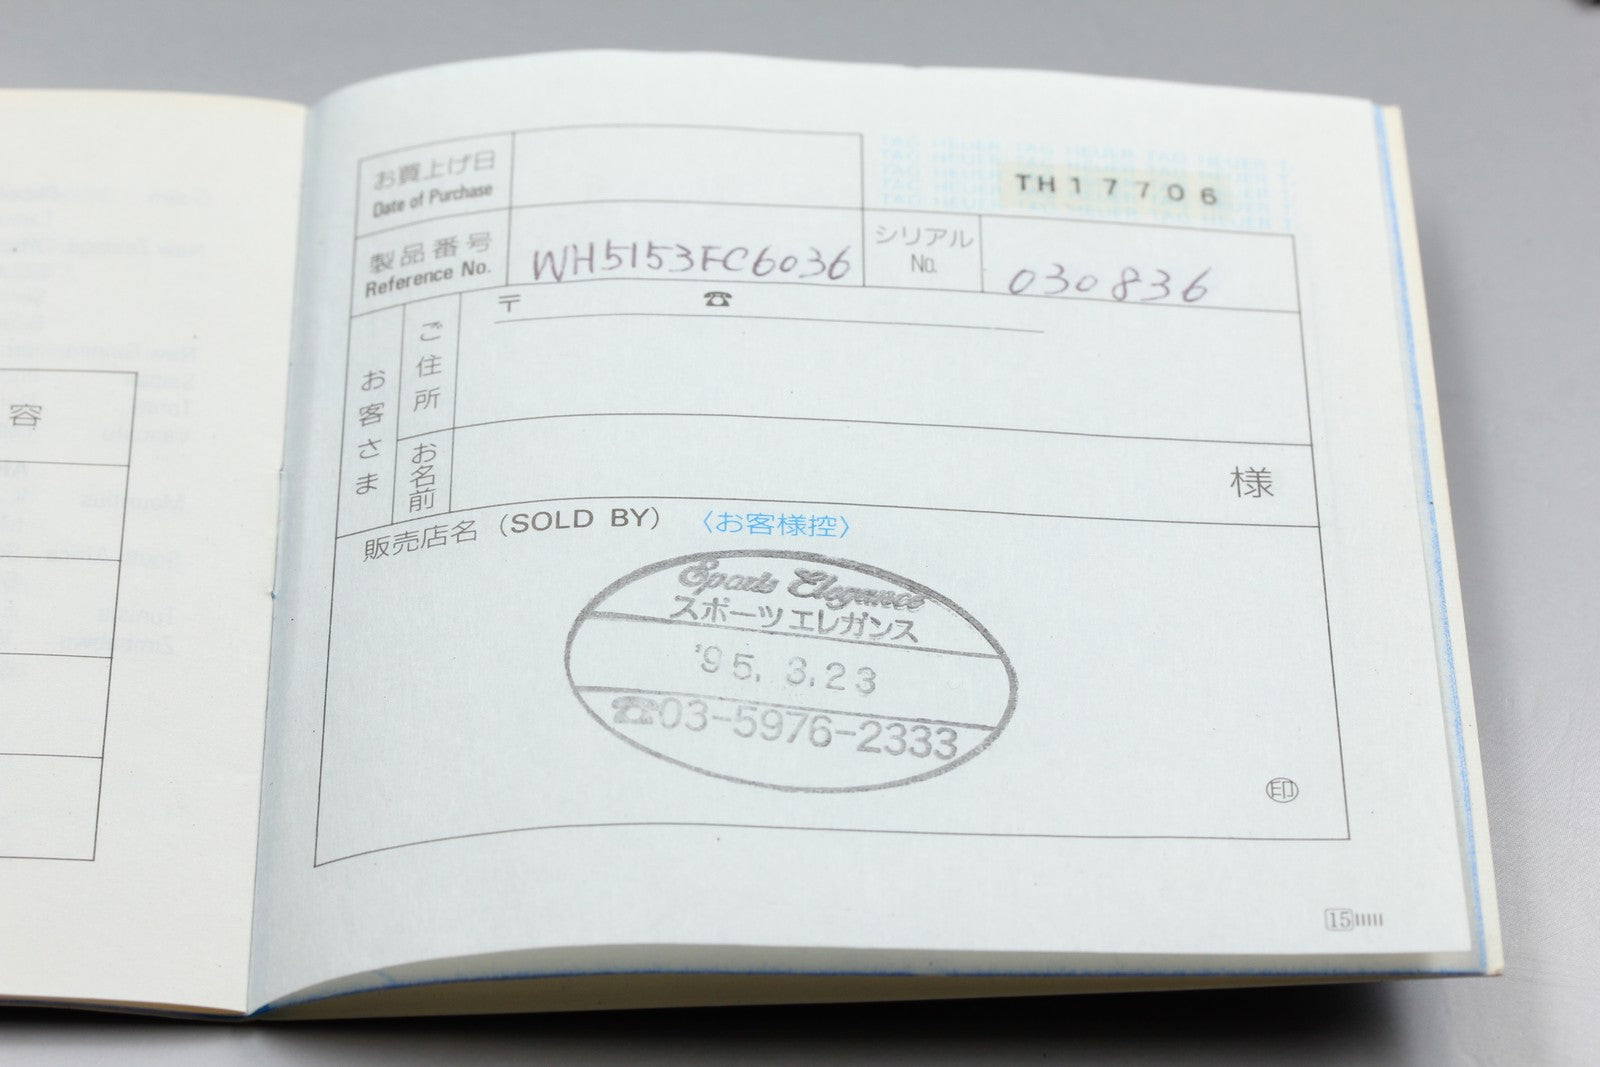 お買上げ日
Date of Purchase
TAG HEUER TAG HEUER TAG HEUER
TH17706
製品番号
Reference No.
WH5153FC6036
シリアル
No.
030836
〒 ☎
お客さま
ご住所
お名前
様
販売店名 (SOLD BY) 〈お客様控〉
Sports Elegance
スポーツエレガンス
'95. 3.23
☎03-5976-2333
印
15
容